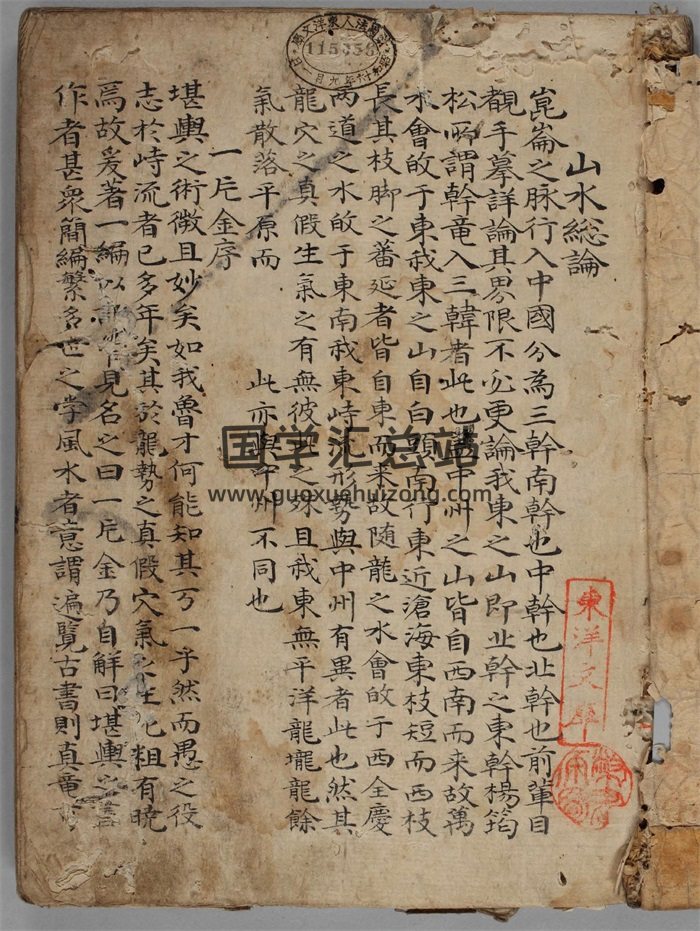 山水総論
崑崙之脉行入中國分為三幹南幹也中幹也北幹也前軰目
覩手摹詳論其界限不必更論我東之山即北幹之東幹楊筠
松所謂幹竜入三韓者此也盖中州之山皆自西南而来故萬
水會敀于東我東之山自白頭南行東近滄海東枝短而西枝
長其枝脚之蕃延者皆自東而来故随龍之水會敀于西全慶
两道之水敀于東南我東峙流形勢與中州有異者此也然其
龍穴之真假生氣之有無彼此之殊且我東無平洋龍壠龍餘
氣散落平原而 此亦與中州不同也
一片金序
堪輿之術微且妙矣如我魯才何能知其万一乎然而愚之役
志於峙流者已多年矣其於龍勢之真假穴氣之生死粗有曉
焉故爰著一編以管見名之曰一片金乃自解曰堪輿之書
作者甚衆簡編繁多世之学風水者意謂遍覧古書則真竜
財團法人東洋文庫
115358
昭和十六年九月一日
東洋文庫
国学汇总站
www.guoxuehuizong.com